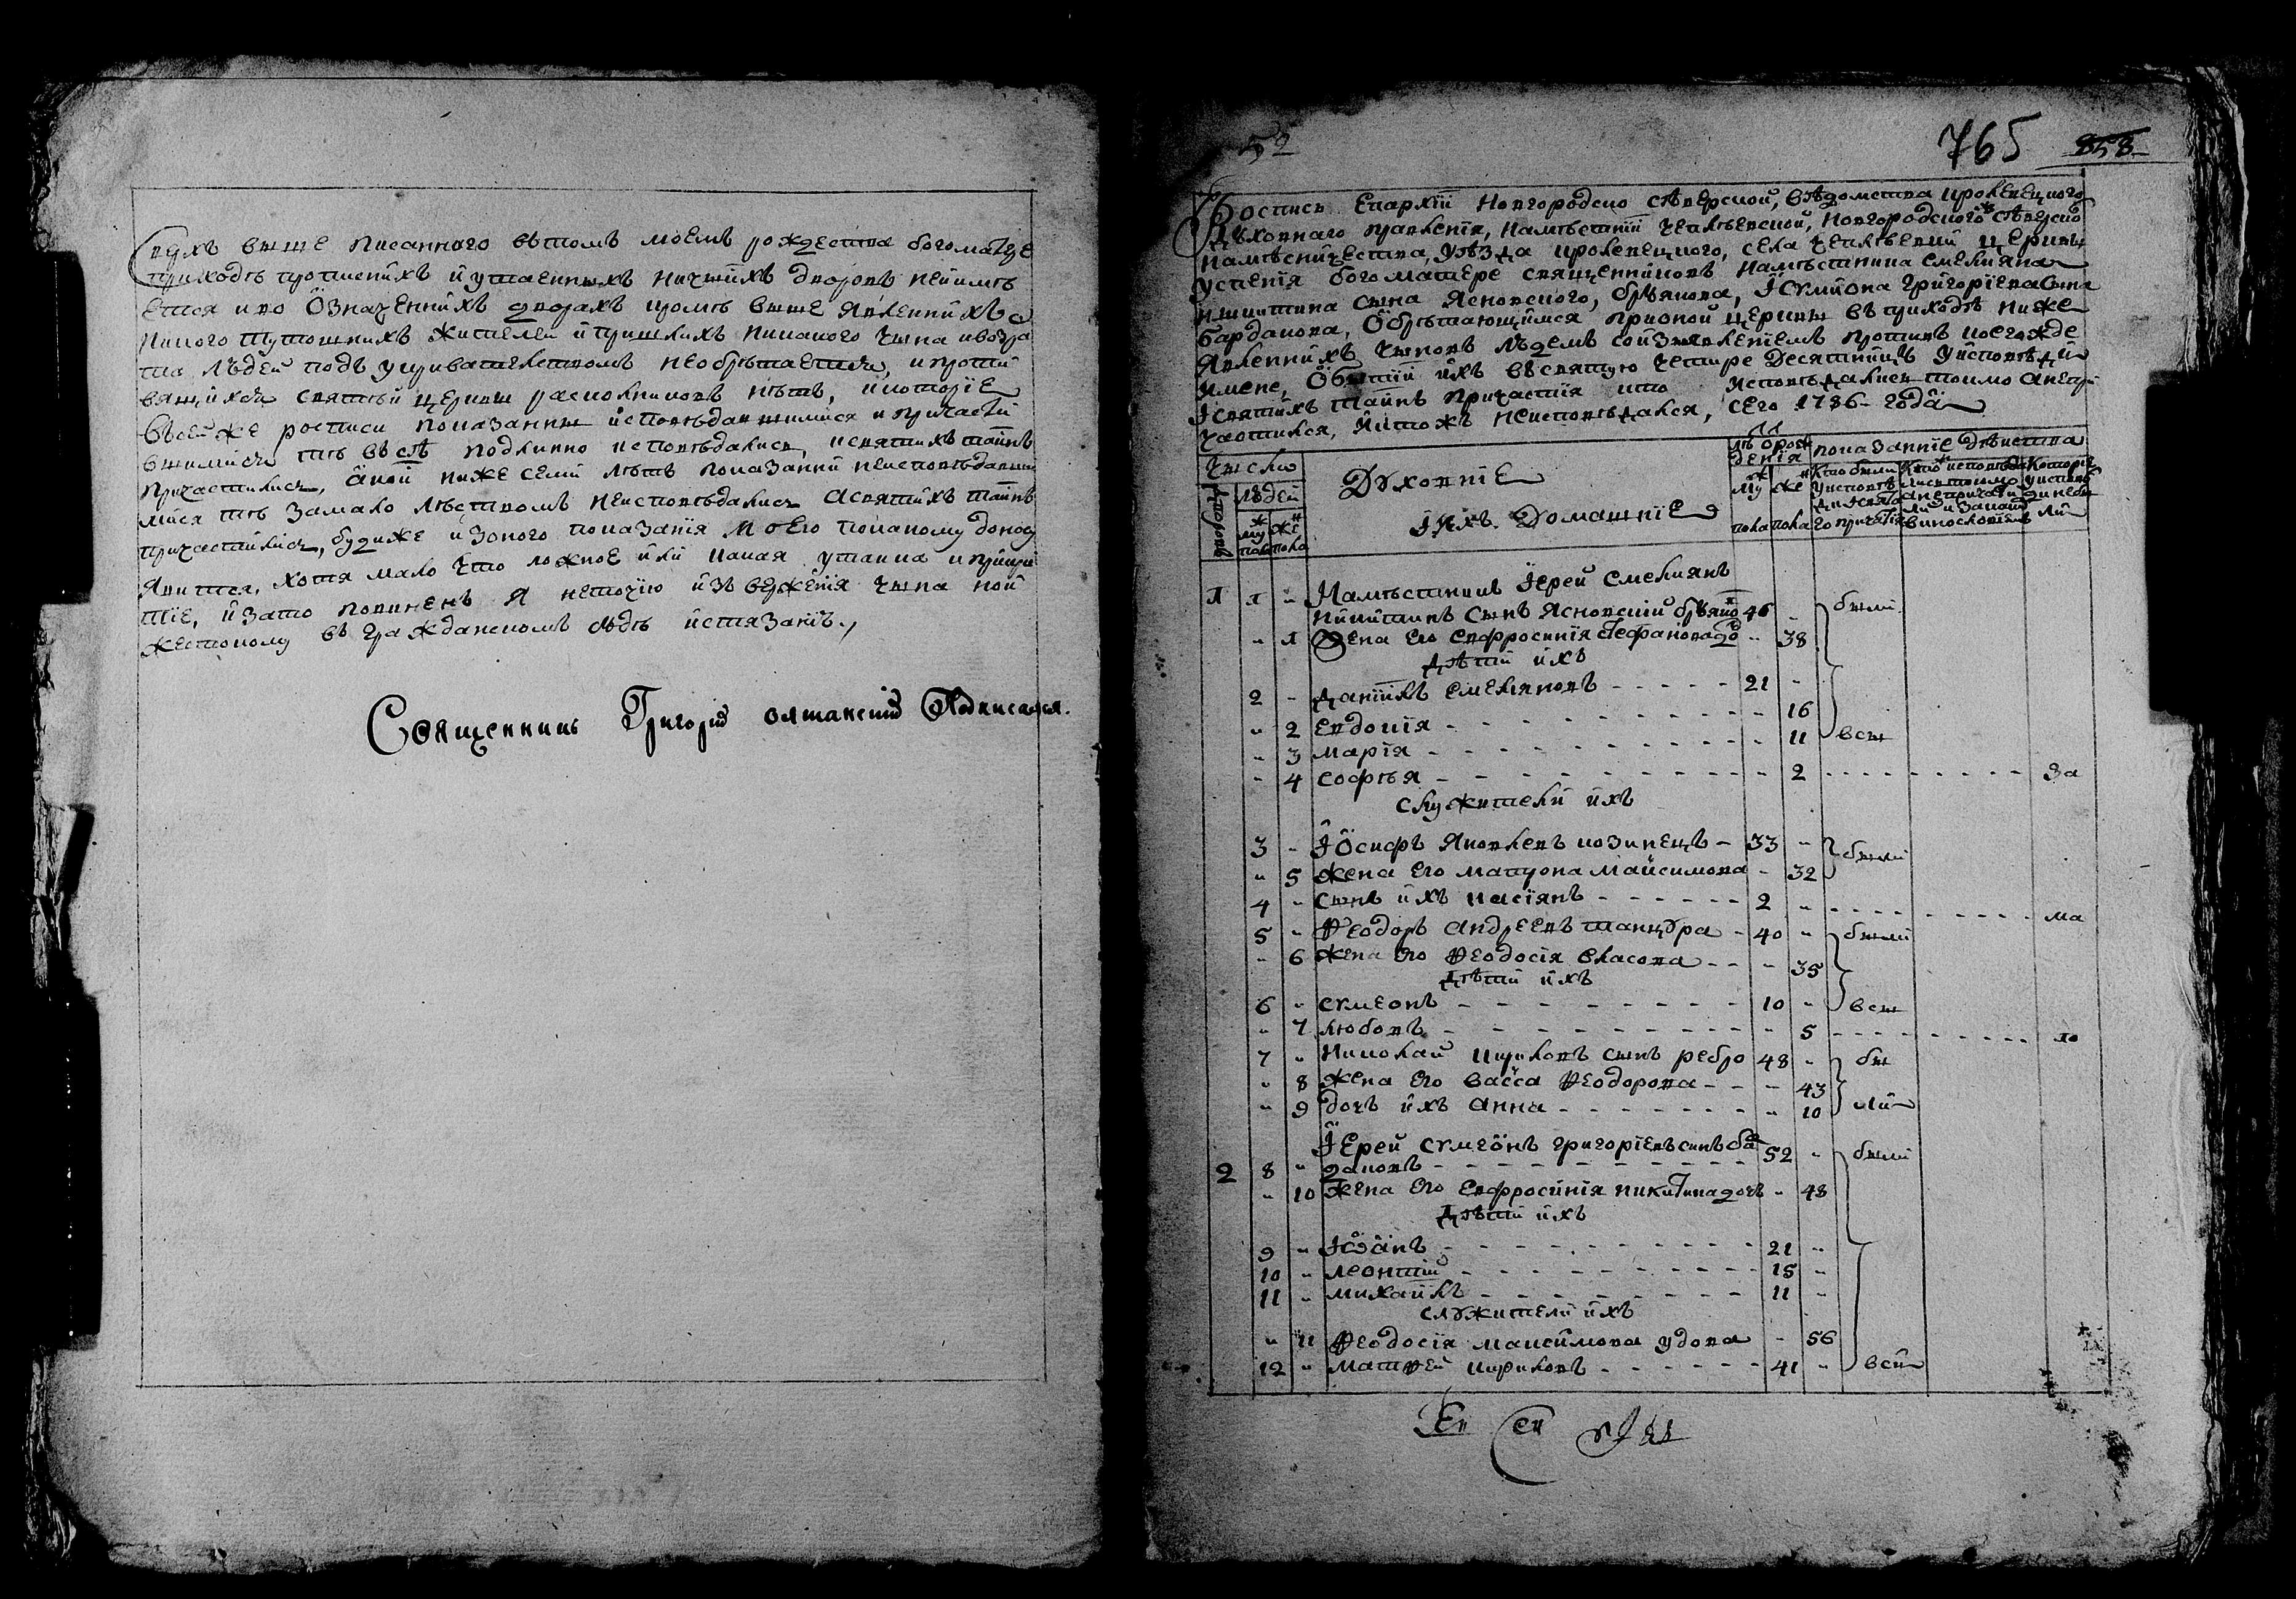 выше писанного вътомъ моемъ рождества богоматре
приходѣ протшенихъ и утаенныхъ ничіихъ дворовъ неимѣ
ется иво означеннихъ дворахъ кромѣ выше явленнихъ
никого тутошнихъ жителей и пришлихъ никакого чына ивозра
та людей подъ укривателтвомъ необрѣтается, и проти
вящихся святѣй церкви расколниковъ нѣтъ, и которіе
въсей же росписи показаны исповѣдавшимися и причасти
вшимися тѣ въсѣ подлинно исповѣдались, исвятихъ таинъ
причастились, акои ниже семи лѣтъ показании неисповѣдавши
мися тѣ замало лѣтствомъ неисповѣдались асвятихъ таинъ
причастились, будиже изоного показанія моего покакому доносу
явится, хотя мало что ложное или какая утаика и прикри
тіе, изато повиненъ я неточію изверженія чына но и
жестокому въ гражданскомъ судѣ истязанію
Священникъ Григорій Подписался.
52
765 858
Роспись Епархіи Новгородско сѣверской, вѣдомства кролевецкого
духовного правленія, намѣстніи чепліевской, Новгородского сѣверско
намѣсничества, уѣзда кролевецкого, села чепліевки церкви
успенія богоматере священниковъ намѣстника Емелияна
никитина сына Ясновского, Ісумиона григоріева сина
барданова, обрѣтающимся прионой церкви въприходѣ ниже
явленнихъ чыновъ людемъ соизявленіемъ противъ коегожде
имене, о бытіи ихъ въсвятую четыре десятницу уисповѣди
Ісвятихъ таинъ причастія кто исповѣдались токмо анепри
частился, иктожъ неисповѣдался, сего 1786 года
число
дворовъ
людей
мужеска пола
женска пола
Духовніе
Іихъ домашніе
лѣ от рождения
мужеска пола
женска пола
показанніе дѣиства
Кто были уисповѣди исвятого причастія
Кто исповѣдались токмо анепричастились изакаким винословіемъ
Которіе уисповѣди небили
1 1 " Намѣстникъ Іерей Емелиянъ
никитинъ сынъ Ясновскій 46 " были
" 1 Жена его Евфросинія Стефанова до " 38
Дѣти ихъ
2 " Даніилъ Емеляновъ 21 "
" 2 Евдокія " 16
" 3 Марія " 11 всѣ
" 4 Софья " 2 за
служители ихъ
3 " Іосифъ Яковлевъ козинецъ 33 " были
" 5 жена его матрона максимова " 32
4 " сынъ ихъ касіянъ 2 " ма
5 " Ѳеодоръ андреевъ танцура 40 " были
" 6 жена его Ѳеодосія власова " 35
Дѣти ихъ
6 " сумеонъ 10 " всѣ
" 7 любовъ " 5 ло
7 " Николай кириловъ сынъ ребро 48 " бы
" 8 жена его васса Ѳеодорова " 43
" 9 дочъ ихъ анна " 10 ли
2 8 " Іерей Сумеонъ григоріевъ синъ бар
дановъ 52 " были
" 10 жена его Евфросинія никитина дочъ " 48
Дѣти ихъ
9 " Іоанъ 21 "
10 " леонтій 15 "
11 " михаилъ 11 "
служители ихъ
" 11 Ѳеодосія максимова удова " 56
12 " матѳей кириловъ 41 " вси